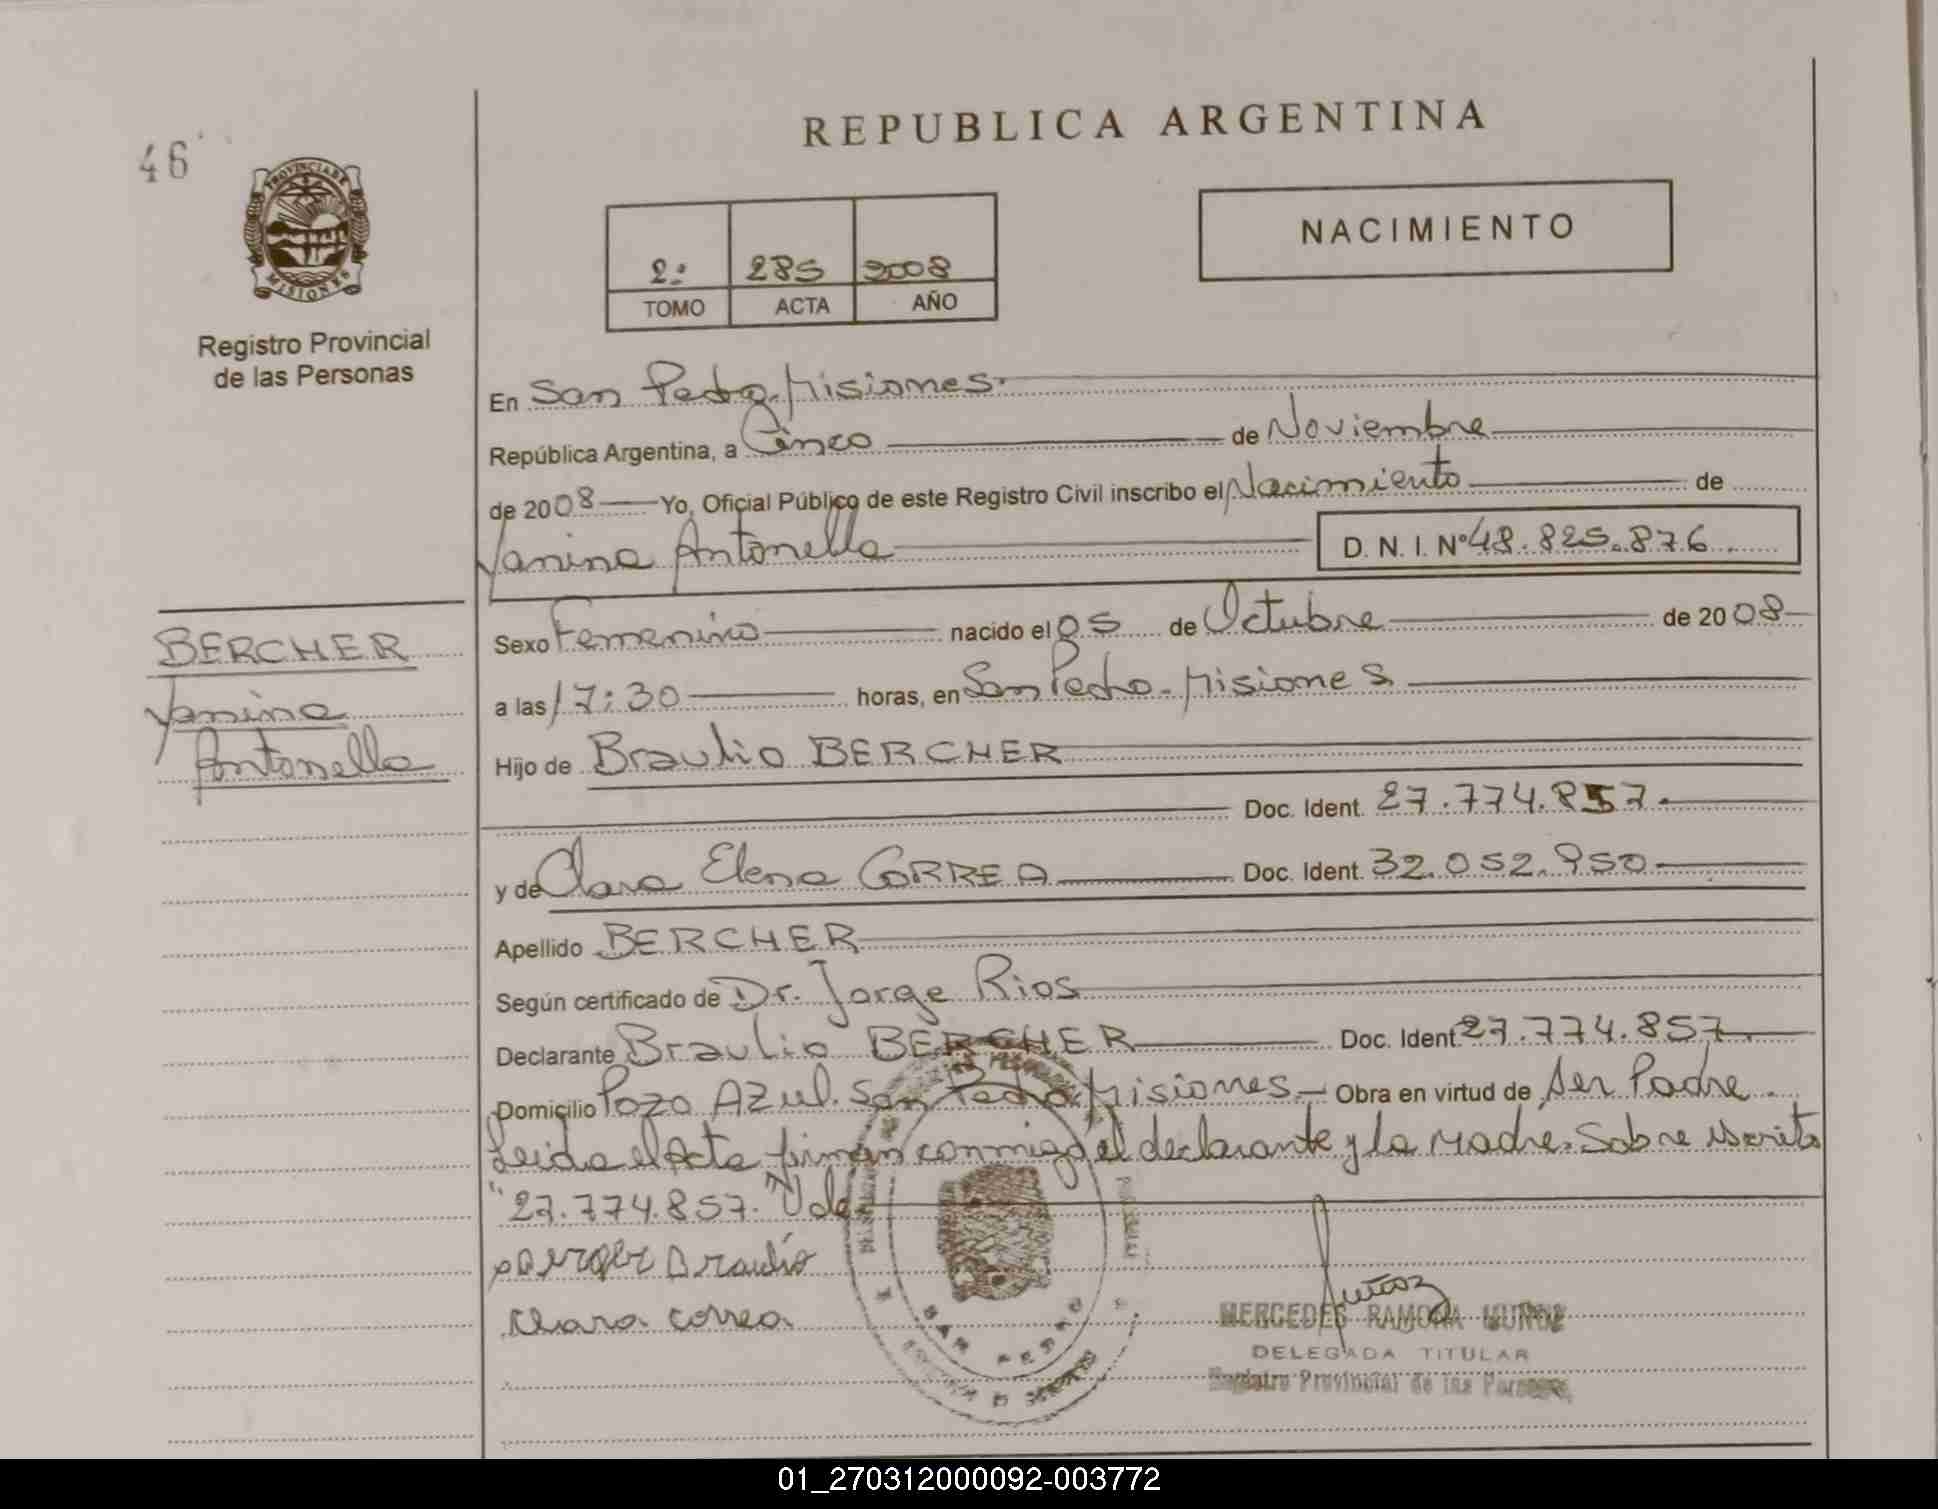 REPUBLICA ARGENTINA
46
PROVINCIA DE
MISIONES
Registro Provincial
de las Personas
2º 285 2008
TOMO ACTA AÑO
NACIMIENTO
En San Pedro. Misiones.
República Argentina, a Cinco de Noviembre
de 2008 Yo, Oficial Público de este Registro Civil inscribo el Nacimiento de
Yanina Antonella D. N. I. Nº 48.825.876.
BERCHER
Yanina
Antonella
Sexo Femenino nacido el 05 de Octubre de 2008
a las 17:30 horas, en San Pedro - Misiones
Hijo de Braulio BERCHER
Doc. Ident. 27.774.857.
y de Clara Elena CORREA Doc. Ident. 32.052.950
Apellido BERCHER
Según certificado de Dr. Jorge Rios
Declarante Braulio BERCHER Doc. Ident 27.774.857.
Domicilio Pozo Azul. San Pedro. Misiones. Obra en virtud de ser Padre.
Leida el Acta firman conmigo el declarante y la Madre. Sobre escrito
"27.774.857." Vale
Braulio
Clara Correa
SAN PEDRO
Muñoz
MERCEDES RAMONA MUÑOZ
DELEGADA TITULAR
Registro Provincial de las Personas
01_270312000092-003772